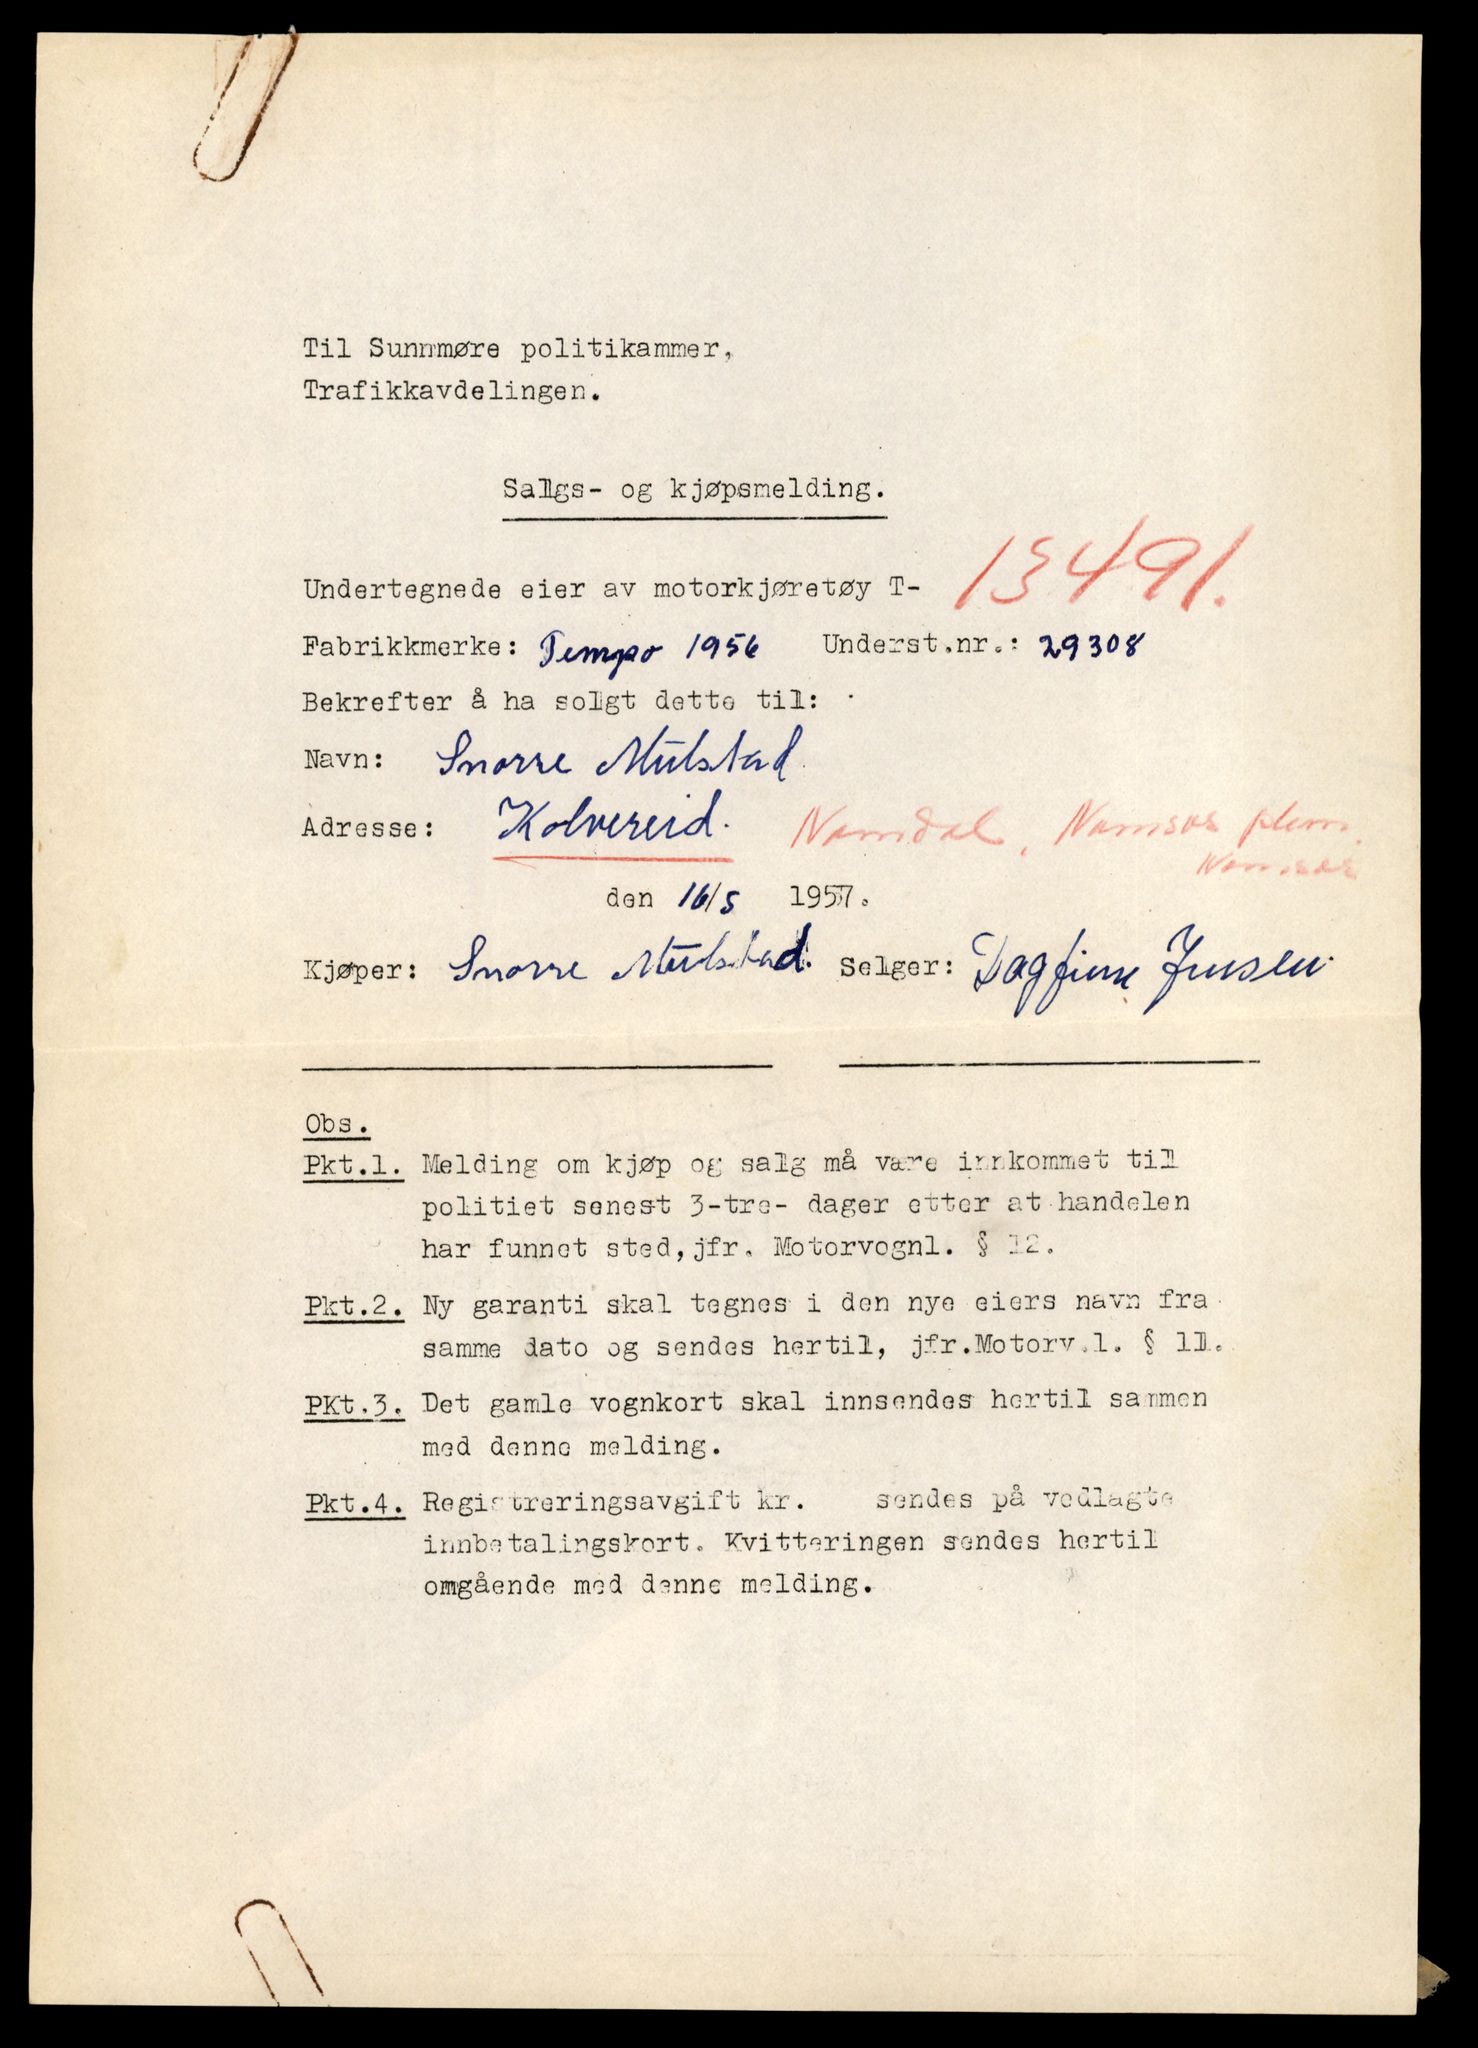 Til Sunnmøre politikammer,
Trafikkavdelingen.
Salgs- og kjøpsmelding.
Undertegnede eier av motorkjøretøy T- 13491.
Fabrikkmerke: Tempo 1956 Underst.nr.: 29308
Bekrefter å ha solgt dette til:
Navn: Snorre Mulstad
Adresse: Kolvereid. Namdal, Namsos pkm.
Namsos
den 16/5 1957.
Kjøper: Snorre Mulstad. Selger: Dagfinn Jensen
Obs.
Pkt.1. Melding om kjøp og salg må være innkommet til
politiet senest 3-tre- dager etter at handelen
har funnet sted, jfr. Motorvognl. § 12.
Pkt.2. Ny garanti skal tegnes i den nye eiers navn fra
samme dato og sendes hertil, jfr.Motorv.l. § 11.
PKt.3. Det gamle vognkort skal innsendes hertil sammen
med denne melding.
Pkt.4. Registreringsavgift kr. sendes på vedlagte
innbetalingskort. Kvitteringen sendes hertil
omgående med denne melding.